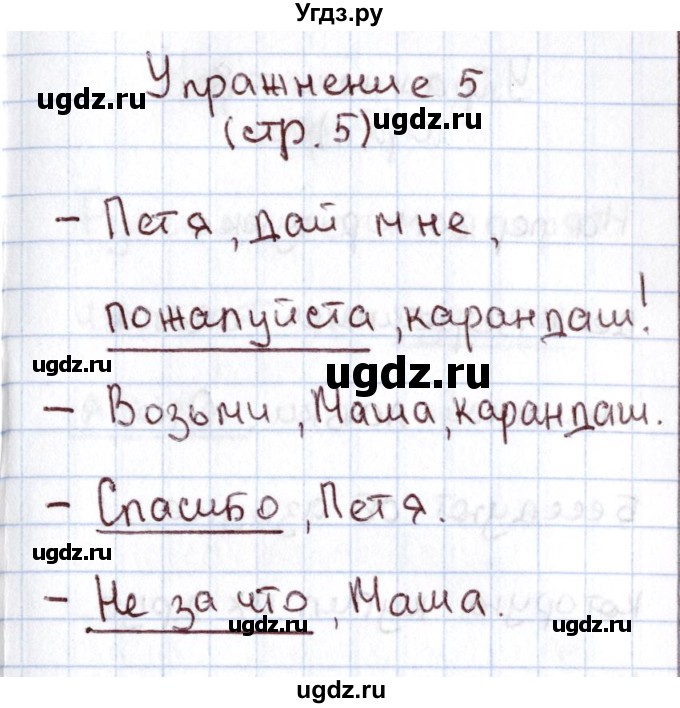 Угдз.ру
Упражнение 5
ugdz.ru
ugdz.ru
(стр. 5)
- Петя, дай мне,
пожалуйста, карандаш!
ugdz.ru
ugdz.ru
- Возьми, Маша, карандаш.
- Спасибо, Петя.
ugdz.ru
- Не за что, Маша.
ugdz.ru
ugdz.ru
ugdz.ru